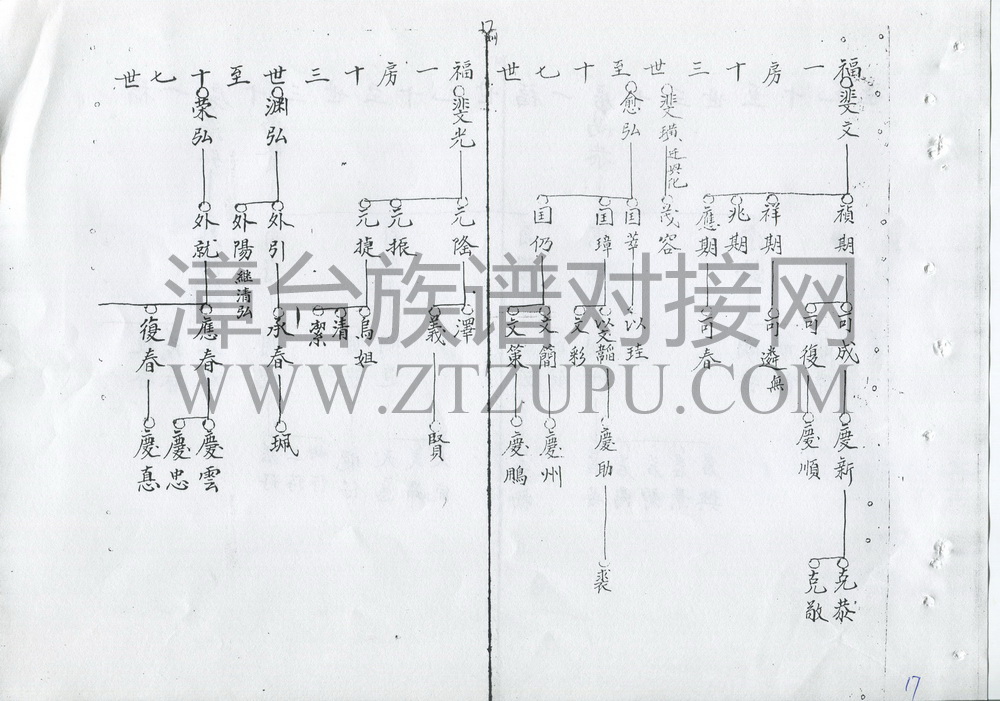 17
福一房十三世至十七世
斐文
斐璜 迁興化
愈弘
禎期
祥期
兆期
應期
茂容
国莘
国璋
国仍
可成
可復
可遴 無
可春
以珪
以韜
文彩
文簡
文策
慶新
慶順
慶助
慶州
慶鵬
克恭
克敬
裘
福一房十三世至十七世
斐光
渊弘
荣弘
元隆
元振
元捷
外引
外陽 継清弘
外就
澤
義
烏姐
清
潔
承春
應春
復春
賢
珮
慶雲
慶忠
慶憙
漳台族谱对接网
WWW.ZTZUPU.COM
17